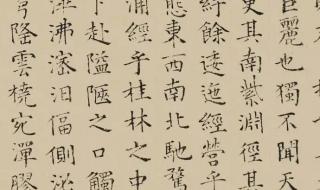 巨麗也獨不聞天
更其南紫淵徑其
紆餘逶迤經營乎
態東西南北馳騖
浦經乎桂林之中
下赴隘陿之口觸
滭沸滵汩偪側泌
穹隆雲橈宛潬膠